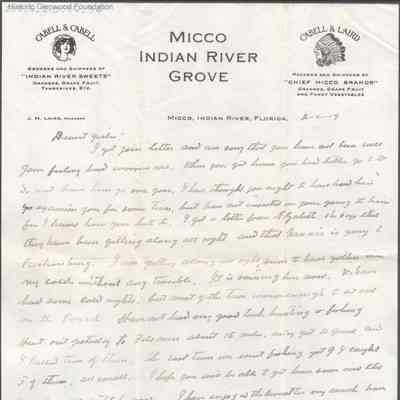 Historic Glenwood Foundation
CABELL & CABELL
GROWERS AND SHIPPERS OF
"INDIAN RIVER SWEETS"
ORANGES, GRAPE FRUIT,
TANGERINES, ETC.
J. H. LAIRD, MANAGER
MICCO
INDIAN RIVER
GROVE
MICCO, INDIAN RIVER, FLORIDA,
CABELL & LAIRD
PACKERS AND SHIPPERS OF
"CHIEF MICCO BRANDS"
ORANGES, GRAPE FRUIT
AND FANCY VEGETABLES
Dearest
I got your letter and am sorry that you have not been well
Your feeling bad worries me. When you get home you had better go to
Dr and have him go over you, I have thought you ought to have had him
go over you for some time, but have not insisted on your going to him
for I know how you hate it. I got a letter from Elizabeth she says that
they have been getting along all right and that is going to
I am getting along all right seem to have gotten over
my cold without any trouble. It is raining here now. We have
had some cold nights, but most of the time warm enough to sit out
on the Porch. Have not had any good luck hunting or fishing
Went out yesterday to about 15 miles, only got
I killed two of them. The last time we went fishing got 9 I caught
5 of them, all small. I hope you will be able to get
I have enjoyed the weather very much have